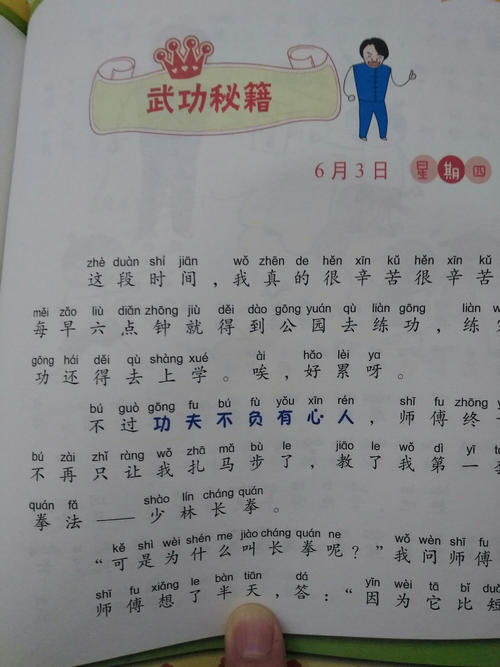 武功秘籍
6月3日 星期四
zhè duàn shí jiān wǒ zhēn de hěn xīn kǔ hěn xīn kǔ
这段时间，我真的很辛苦很辛苦
měi zǎo liù diǎn zhōng jiù děi dào gōng yuán qù liàn gōng liàn
每早六点钟就得到公园去练功，练
gōng hái děi qù shàng xué ài hǎo lèi ya
功还得去上学。唉，好累呀。
bú guò gōng fu bú fù yǒu xīn rén shī fu zhōng
不过功夫不负有心人，师傅终
bú zài zhǐ ràng wǒ zhā mǎ bù le jiāo le wǒ dì yī
不再只让我扎马步了，教了我第一
quán fǎ shào lín cháng quán
拳法——少林长拳。
kě shì wèi shén me jiào cháng quán ne wǒ wèn shī fu
“可是为什么叫长拳呢？”我问师傅
shī fu xiǎng le bàn tiān dá yīn wèi tā bǐ duǎn
师傅想了半天，答：“因为它比短